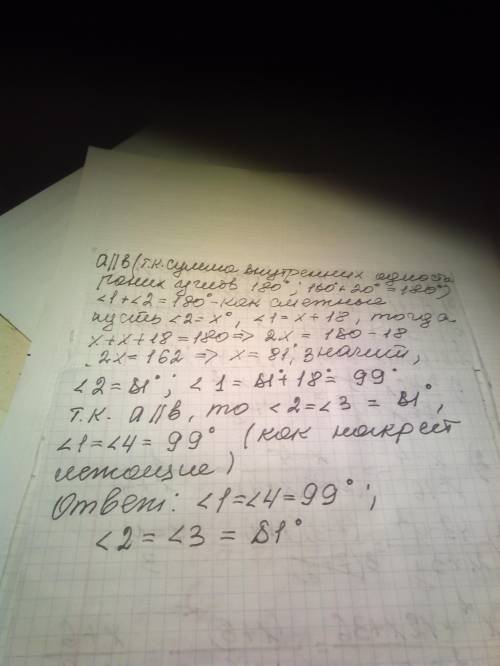 a||b (т.к. сумма внутренних односта
ронних углов 180°; 160+20°=180°)
∠1+∠2=180°-как смежные
пусть ∠2=x°, ∠1=x+18, тогда
x+x+18=180=> 2x = 180-18
2x=162 => x=81°, значит,
∠2=81°; ∠1=81°+18°=99°
т.к. a||b, то ∠2=∠3 = 81°,
∠1=∠4= 99° (как накрест
лежащие)
Ответ: ∠1=∠4=99°;
∠2=∠3=81°